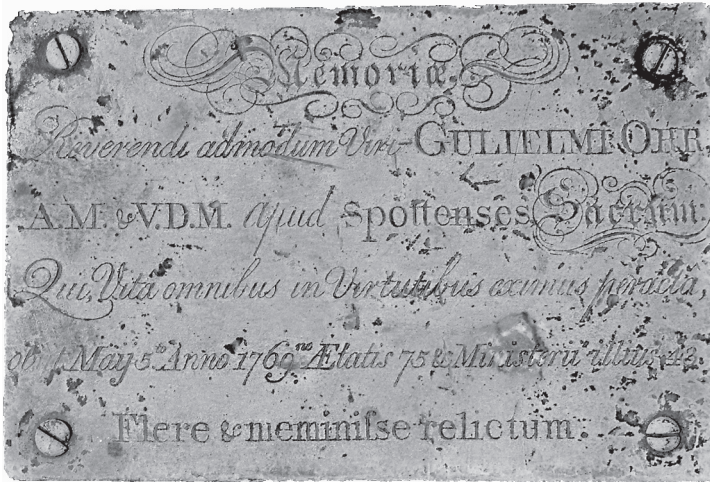 Memoriæ.
Reverendi admodum Viri GULIELMI ORR,
A.M. & V.D.M. apud Spottenses Sacrum:
Qui, Vitâ omnibus in Virtutibus eximius peractâ,
obiit May 5to. Anno 1769no Ætatis 75 & Ministerii illius 43.
Flere & meminiſse relictum.